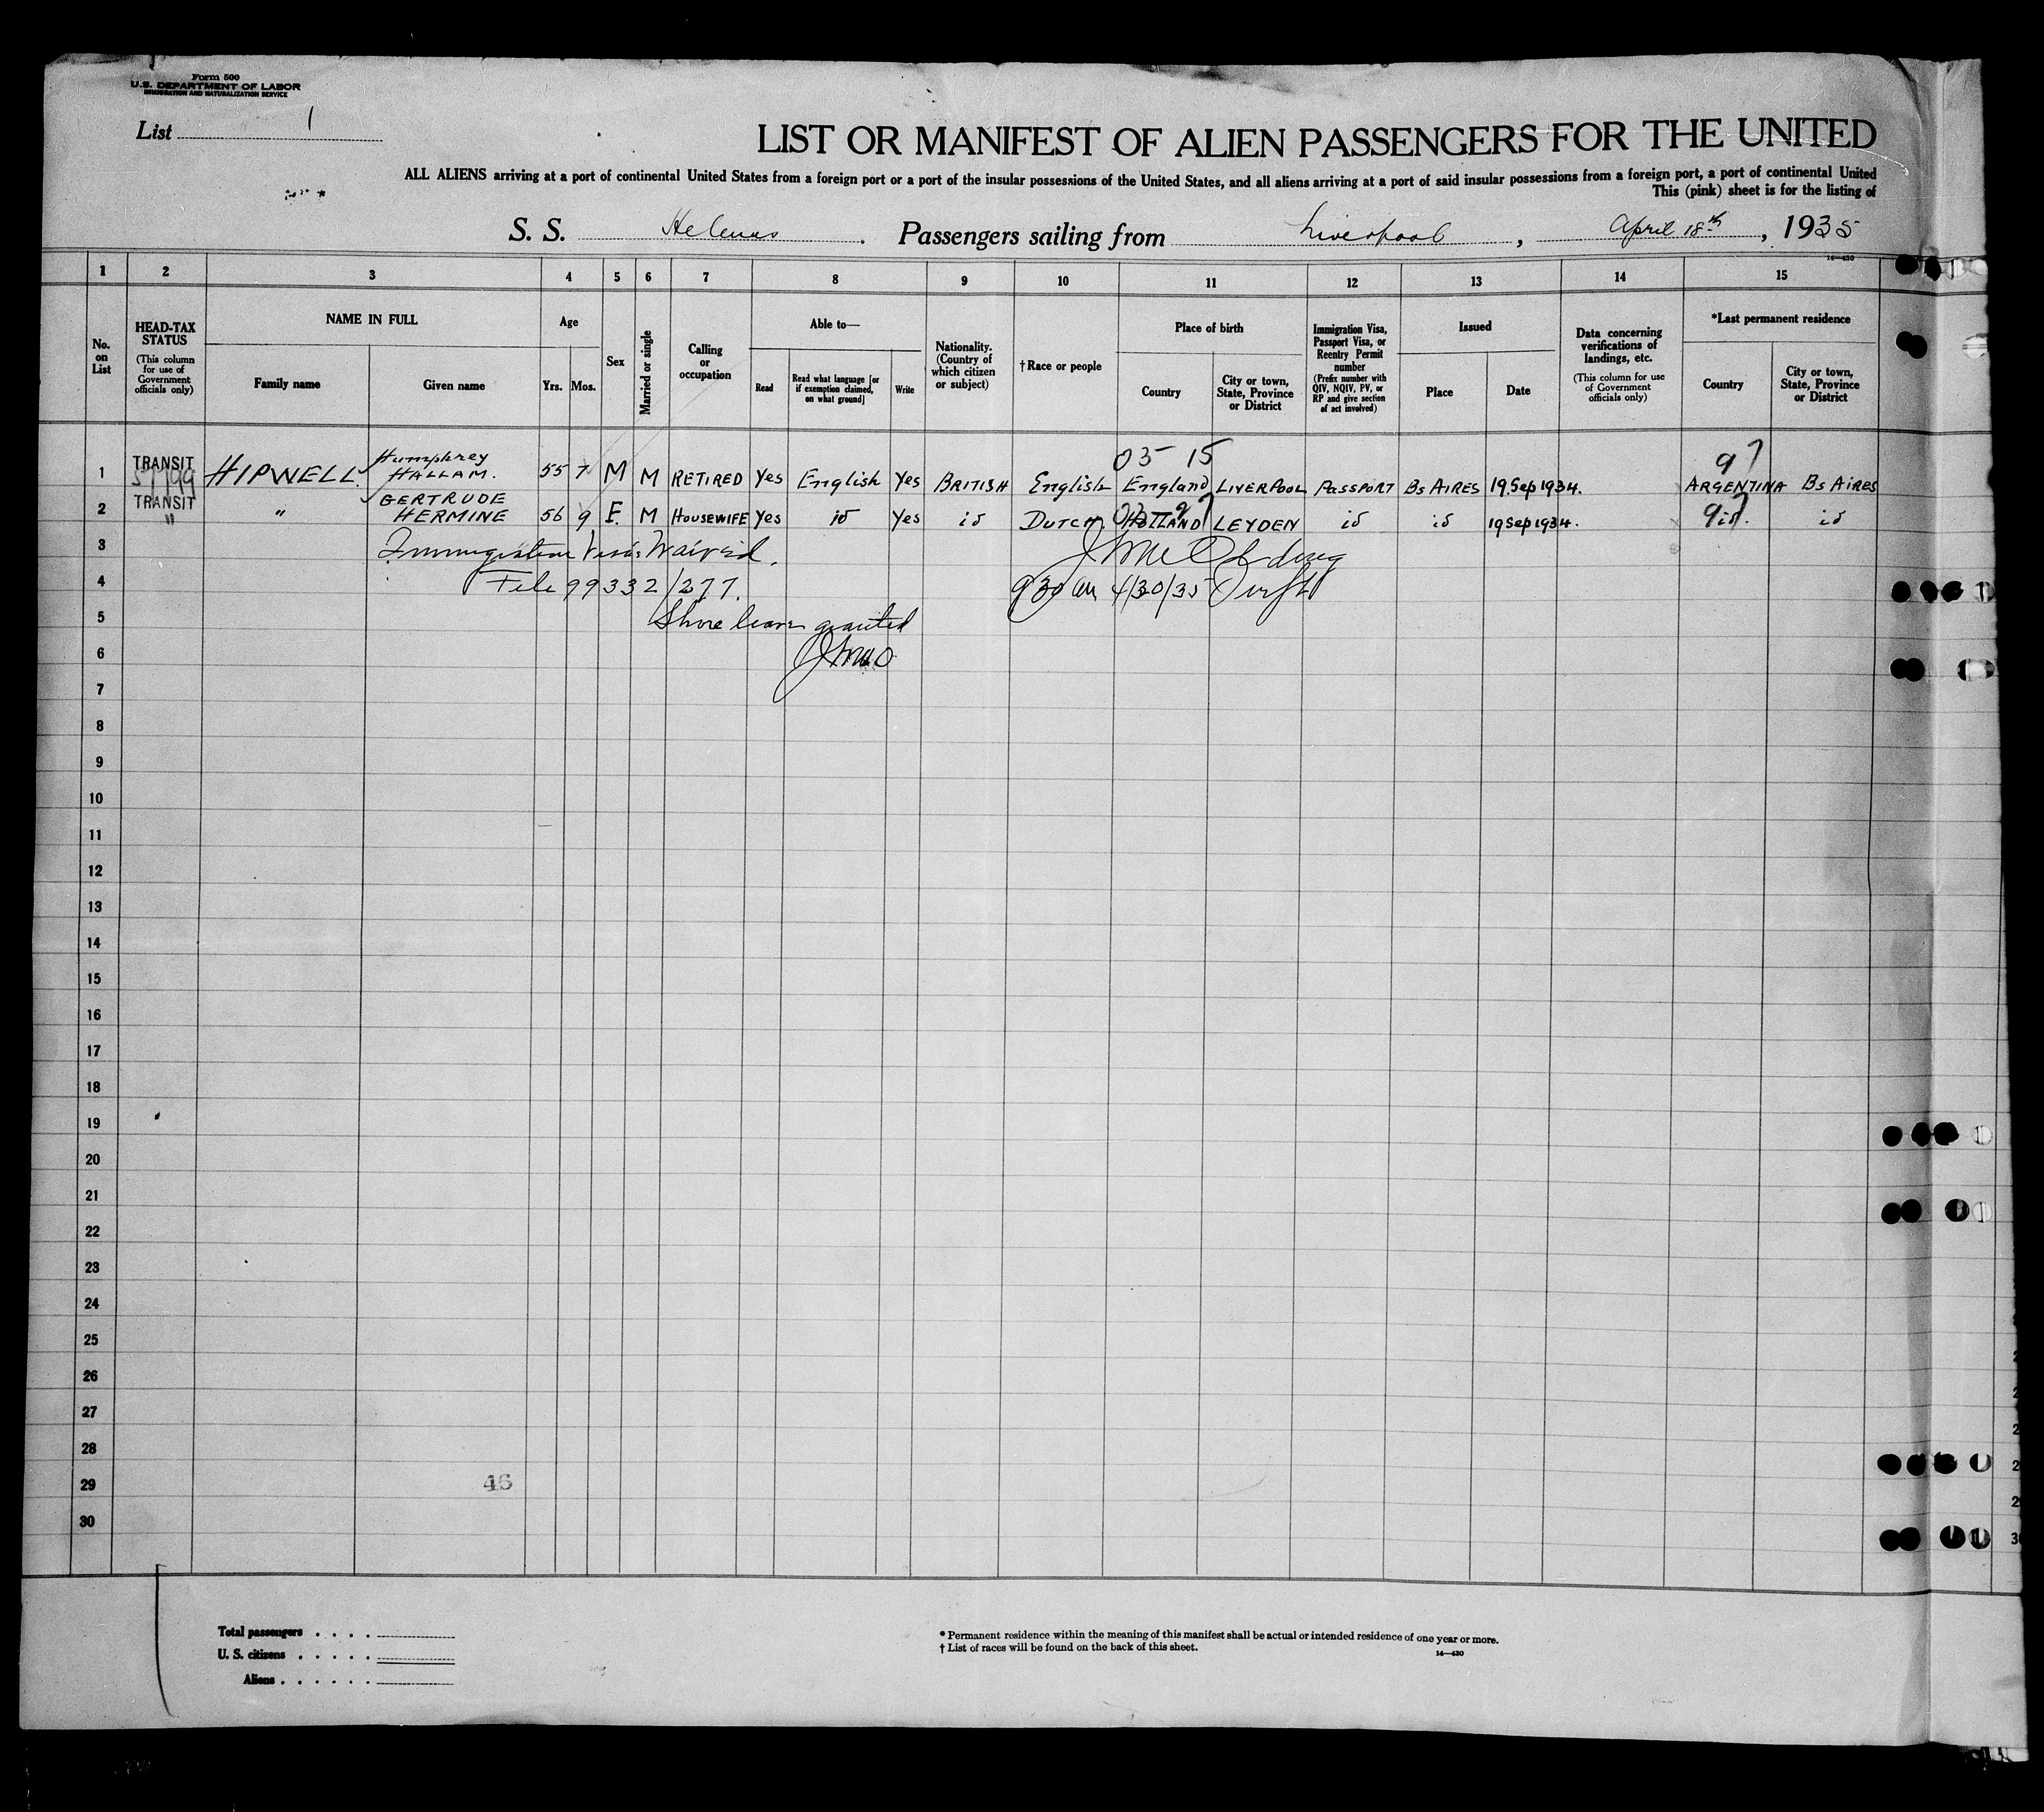 Form 500
U.S. DEPARTMENT OF LABOR
IMMIGRATION AND NATURALIZATION SERVICE
List 1
LIST OR MANIFEST OF ALIEN PASSENGERS FOR THE UNITED
ALL ALIENS arriving at a port of continental United States from a foreign port or a port of the insular possessions of the United States, and all aliens arriving at a port of said insular possessions from a foreign port, a port of continental United
This (pink) sheet is for the listing of
S. S. Helenus. Passengers sailing from Liverpool, April 18th, 1935
14—430
1 2 3 4 5 6 7 8 9 10 11 12 13 14 15
No. on List
HEAD-TAX STATUS
(This column for use of Government officials only)
NAME IN FULL
Family name
Given name
Age
Yrs.
Mos.
Sex
Married or single
Calling or occupation
Able to—
Read
Read what language [or if exemption claimed, on what ground]
Write
Nationality. (Country of which citizen or subject)
†Race or people
Place of birth
Country
City or town, State, Province or District
Immigration Visa, Passport Visa, or Reentry Permit number
(Prefix number with QIV, NQIV, PV, or RP and give section of act involved)
Issued
Place
Date
Data concerning verifications of landings, etc.
(This column for use of Government officials only)
*Last permanent residence
Country
City or town, State, Province or District
03 15
97
1 TRANSIT HIPWELL. Humphrey HALLAM. 55 7 M M RETIRED Yes English Yes BRITISH English England LIVERPOOL PASSPORT Bs AIRES 19.Sep 1934. ARGENTINA Bs AIRES
2 TRANSIT " " GERTRUDE HERMINE 56 9 F. M HOUSEWIFE Yes id Yes id DUTCH. HOLLAND LEYDEN id id 19 Sep 1934. id. id
3 Immigration Visas Waived.
4 File 99332/277. 930 am 4/30/35
5 Shore leave granted
6
7
8
9
10
11
12
13
14
15
16
17
18
19
20
21
22
23
24
25
26
27
28
29 46
30
Total passengers
U. S. citizens
Aliens
* Permanent residence within the meaning of this manifest shall be actual or intended residence of one year or more.
† List of races will be found on the back of this sheet.
14—430